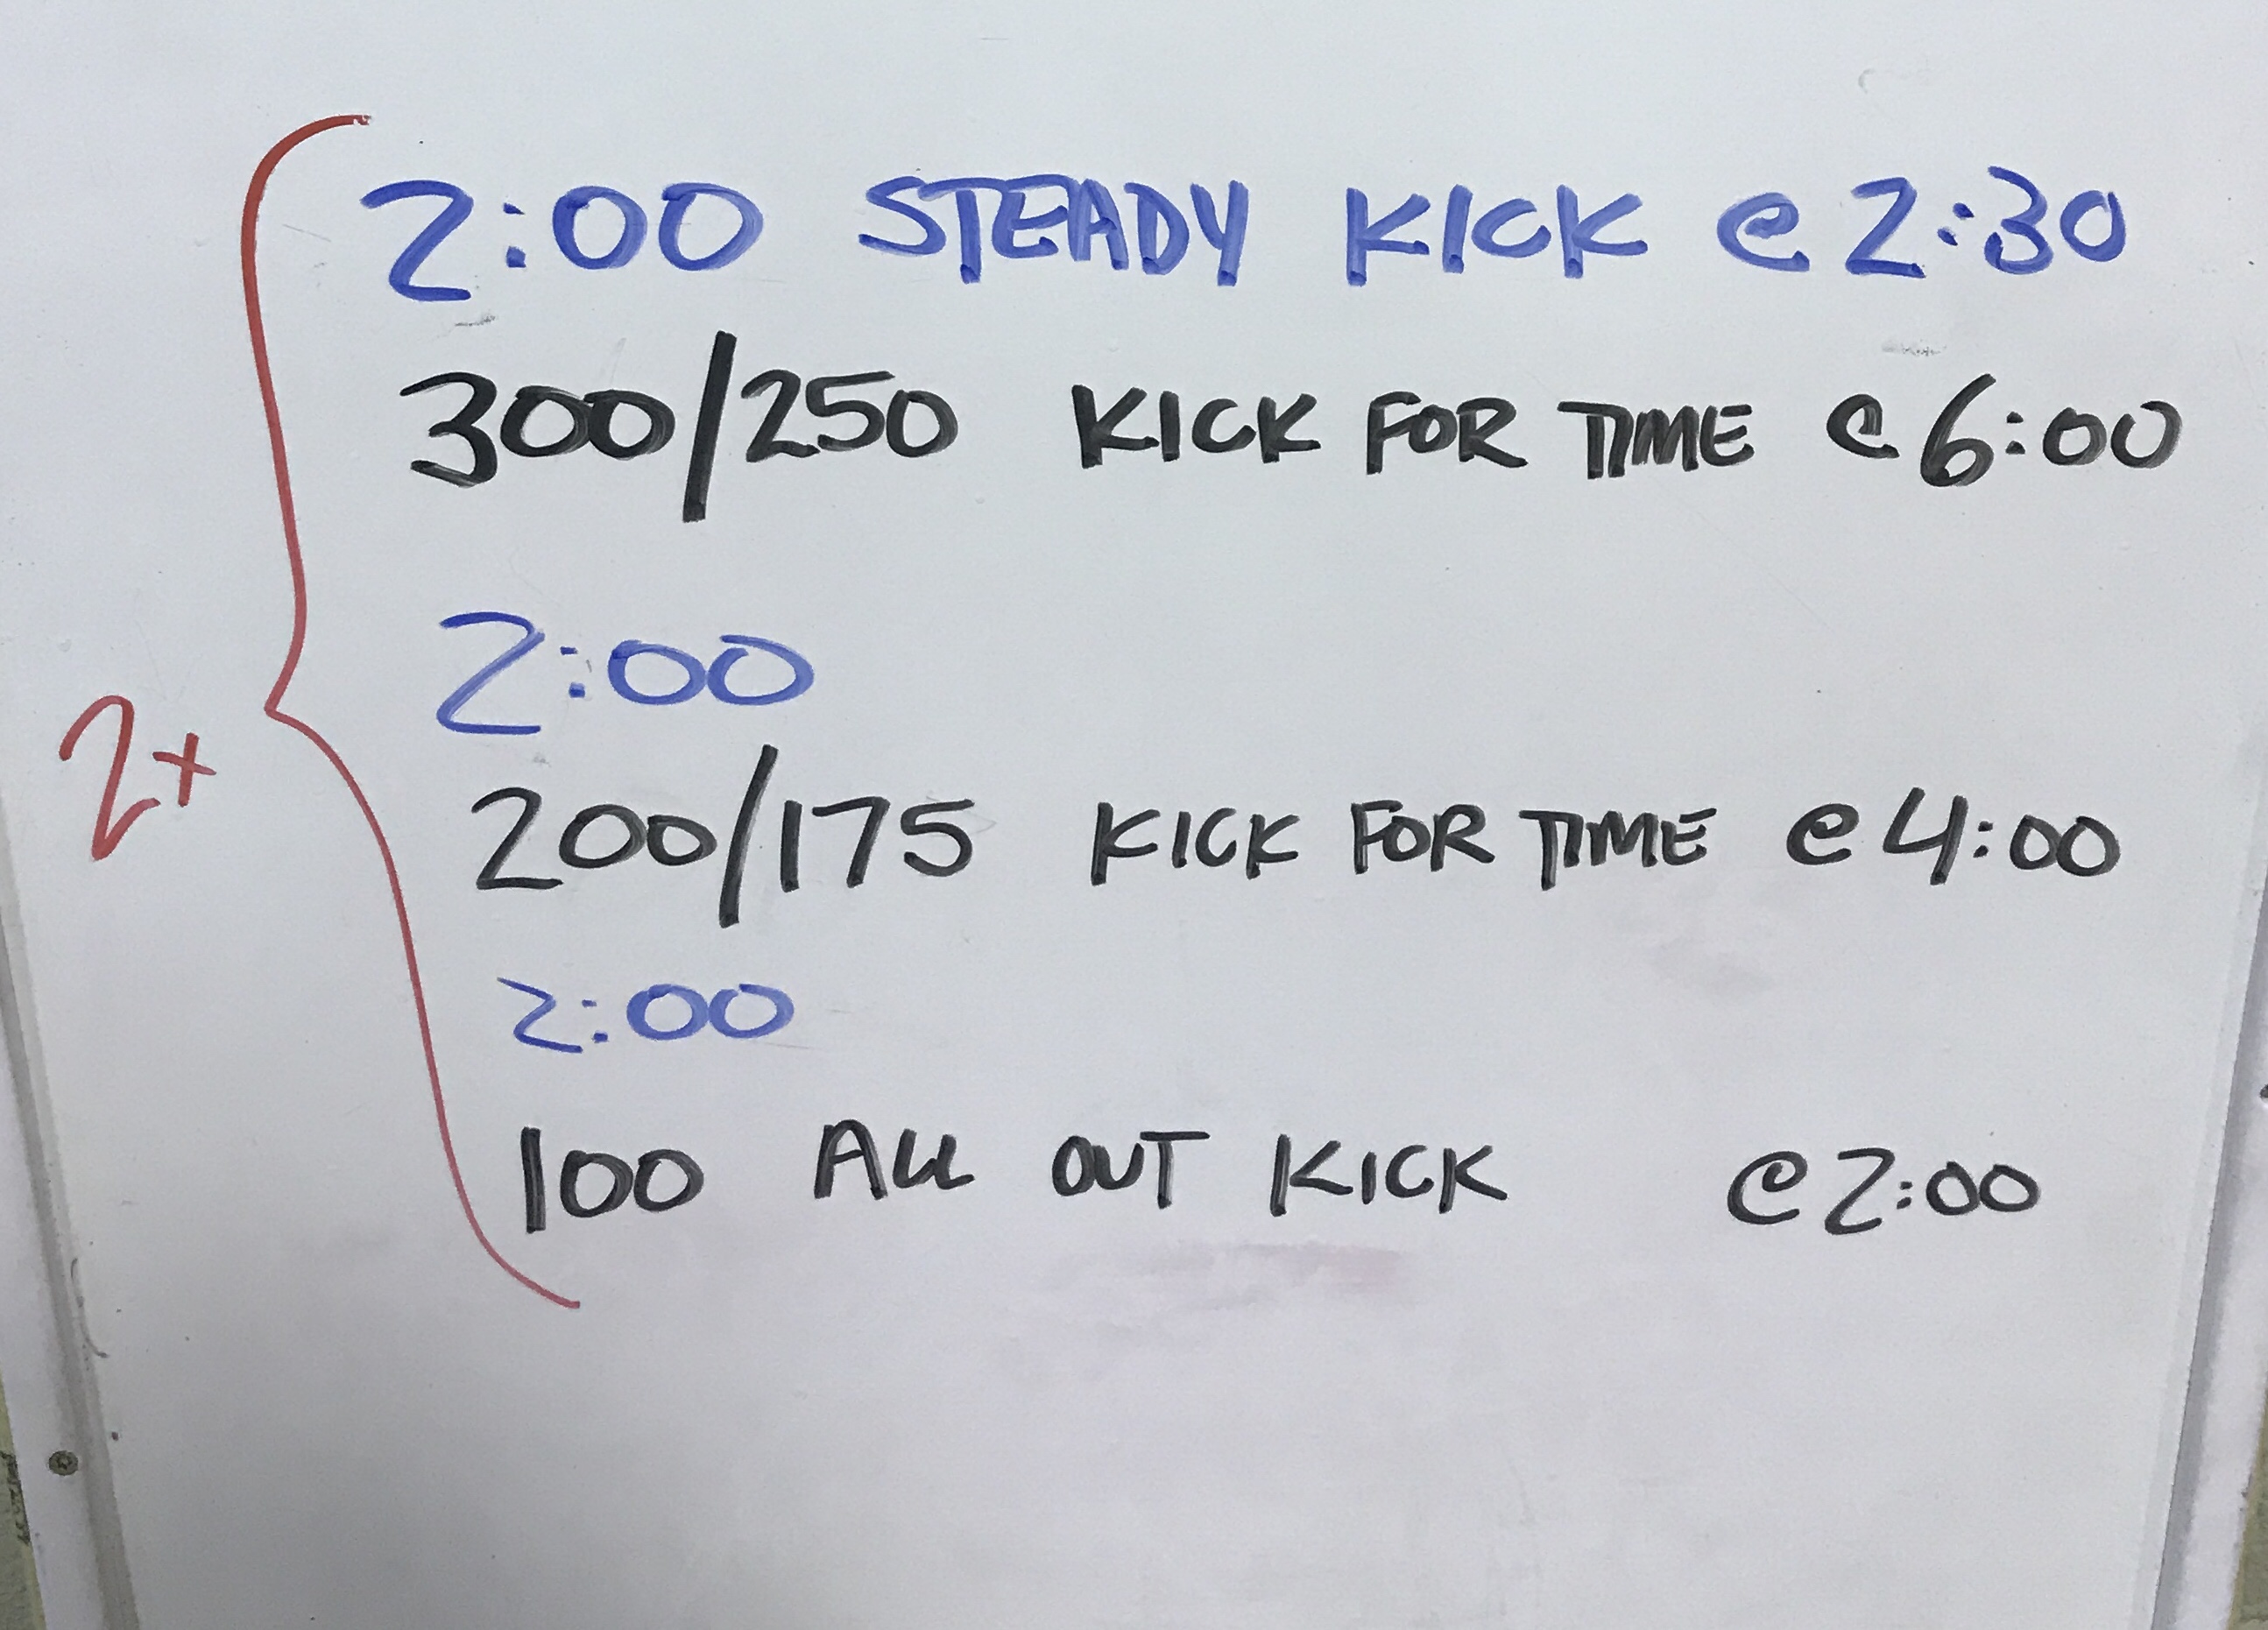 2:00 STEADY KICK @ 2:30
300/250 KICK FOR TIME @ 6:00
2:00
2x
200/175 KICK FOR TIME @ 4:00
2:00
100 ALL OUT KICK @ 2:00